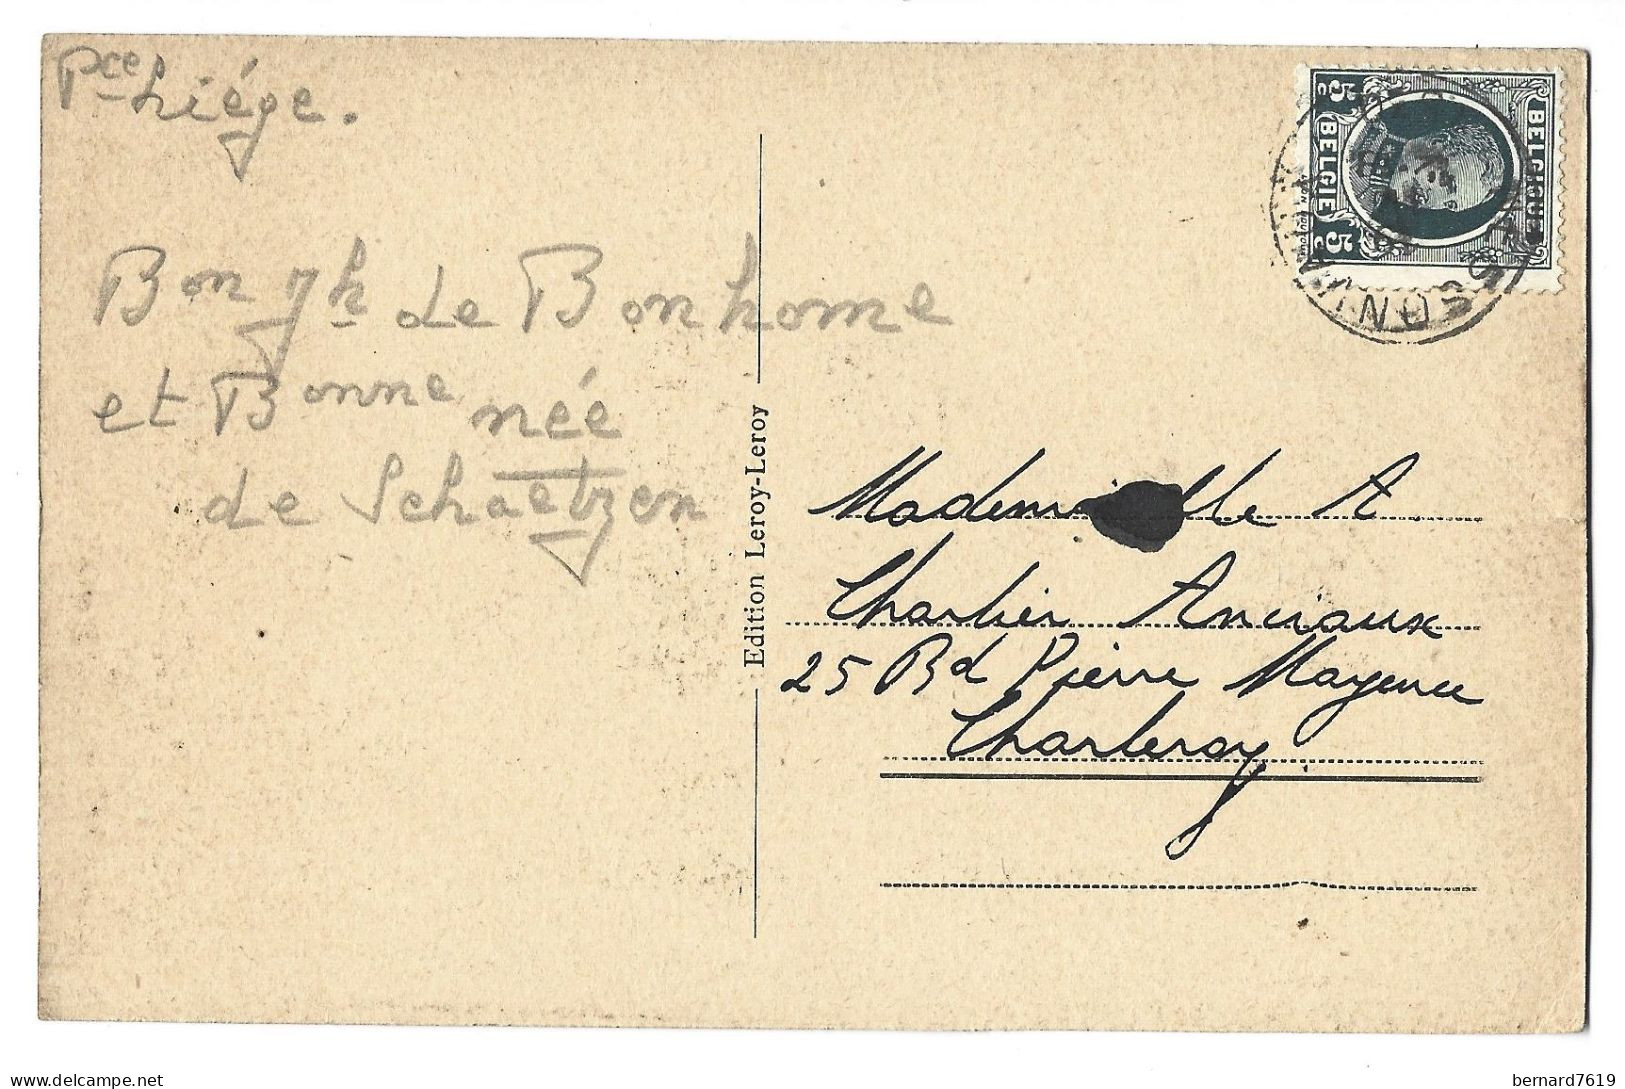 Pce Liége.
Bon Jh de Bonhome
et Bonne née
de Schaetzen
Edition Leroy-Leroy
BELGIQUE
5c BELGIE 5c
Mademoiselle A.
Charlier Anciaux
25 Bd Pierre Mayence
Charleroy
bernard7619